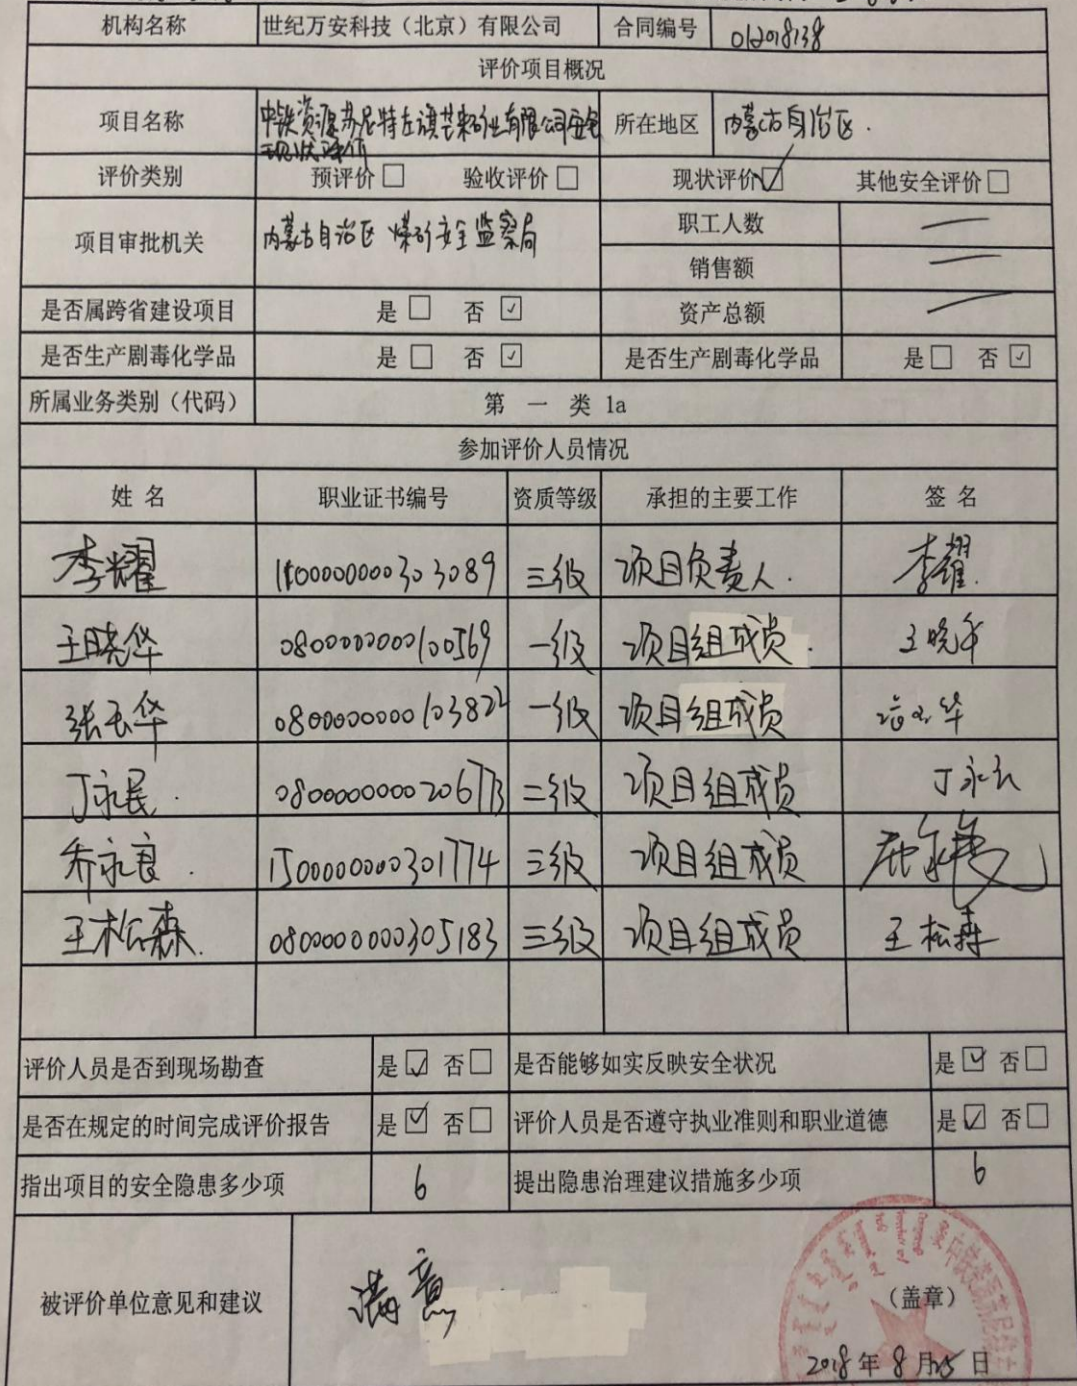 机构名称 世纪万安科技（北京）有限公司 合同编号 012018138
评价项目概况
项目名称 中铁资源苏尼特左旗芒来矿业有限公司安全 所在地区 内蒙古自治区.
现状评价
评价类别 预评价□ 验收评价□ 现状评价☑ 其他安全评价□
项目审批机关 内蒙古自治区 煤矿安全监察局 职工人数 —
销售额 —
是否属跨省建设项目 是□ 否☑ 资产总额 —
是否生产剧毒化学品 是□ 否☑ 是否生产剧毒化学品 是□ 否☑
所属业务类别（代码） 第 一 类 1a
参加评价人员情况
姓 名 职业证书编号 资质等级 承担的主要工作 签 名
李耀 1100000000303089 三级 项目负责人. 李耀.
王晓华 0800000000100569 一级 项目组成员. 王晓华
张玉华 0800000000103822 一级 项目组成员 张玉华
丁永民. 0800000000206773 二级 项目组成员 丁永民
乔永良. 1500000000301774 三级 项目组成员
王松森. 0800000000305183 三级 项目组成员 王松森
评价人员是否到现场勘查 是☑ 否□ 是否能够如实反映安全状况 是☑ 否□
是否在规定的时间完成评价报告 是☑ 否□ 评价人员是否遵守执业准则和职业道德 是☑ 否□
指出项目的安全隐患多少项 6 提出隐患治理建议措施多少项 6
被评价单位意见和建议 满意 （盖章）
2018年8月25日